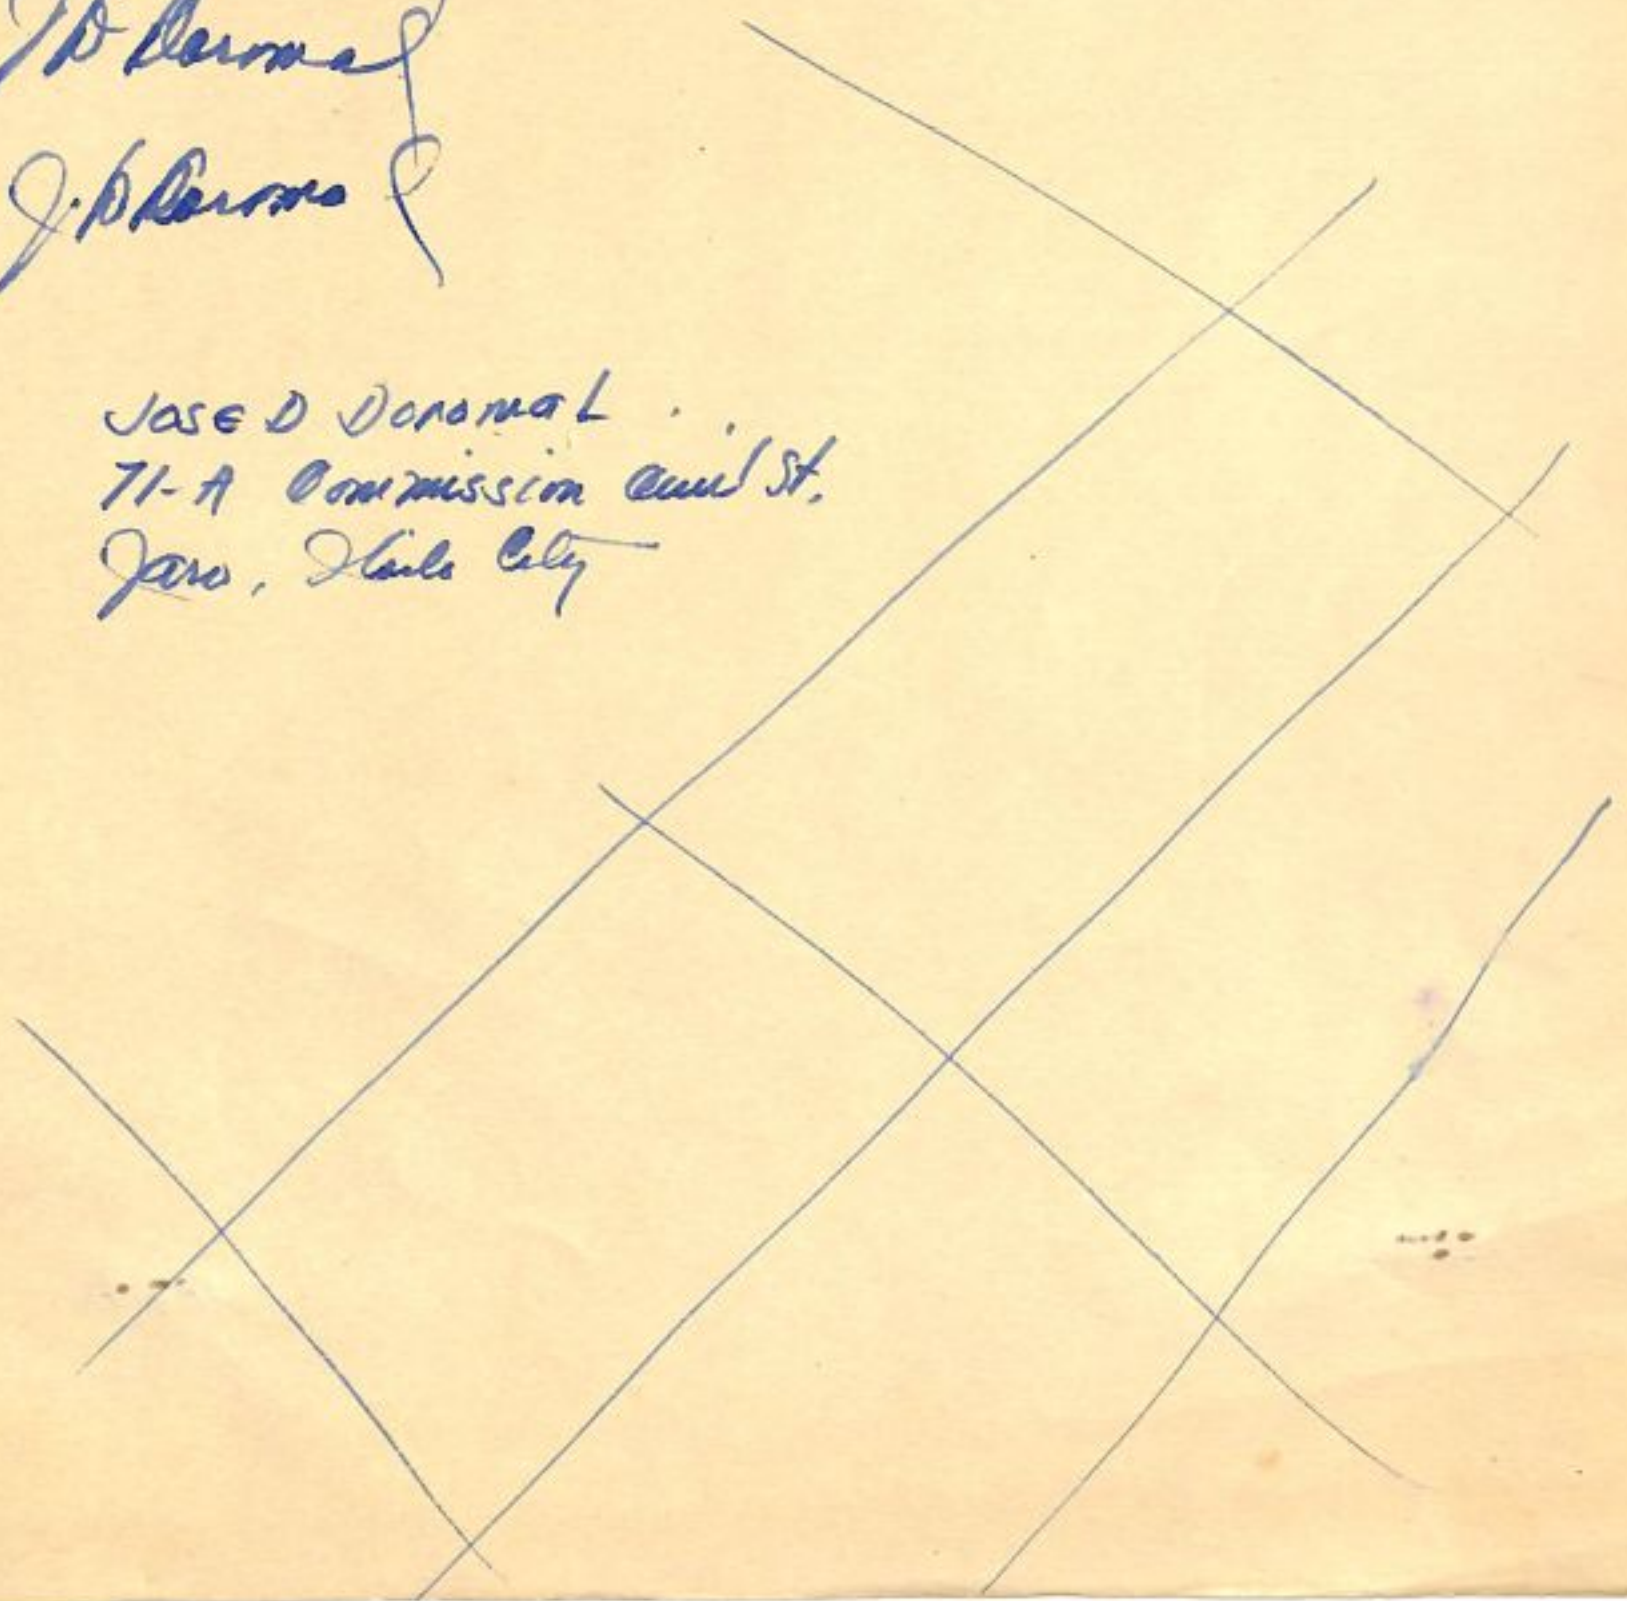 J D Doromal
J. D Doromal
JOSE D DOROMAL
71-A Commission Civil St.
Jaro, Iloilo City